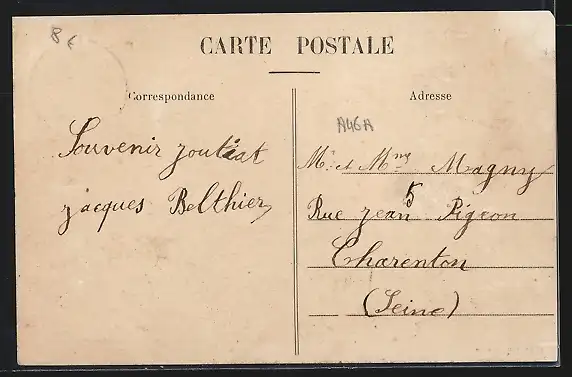 8 €
CARTE POSTALE
Correspondance
Adresse
A46A
Souvenir
jacques Belthier
Mr et Mme Magny
5
Rue jean Pigeon
Charenton
(Seine)